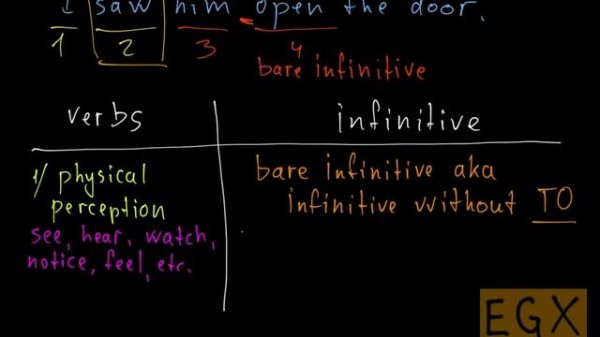 I saw him open the door.
1 2 3 4
bare infinitive
verbs infinitive
1/ physical
perception
see, hear, watch,
notice, feel, etc.
bare infinitive aka
infinitive without TO
EGX